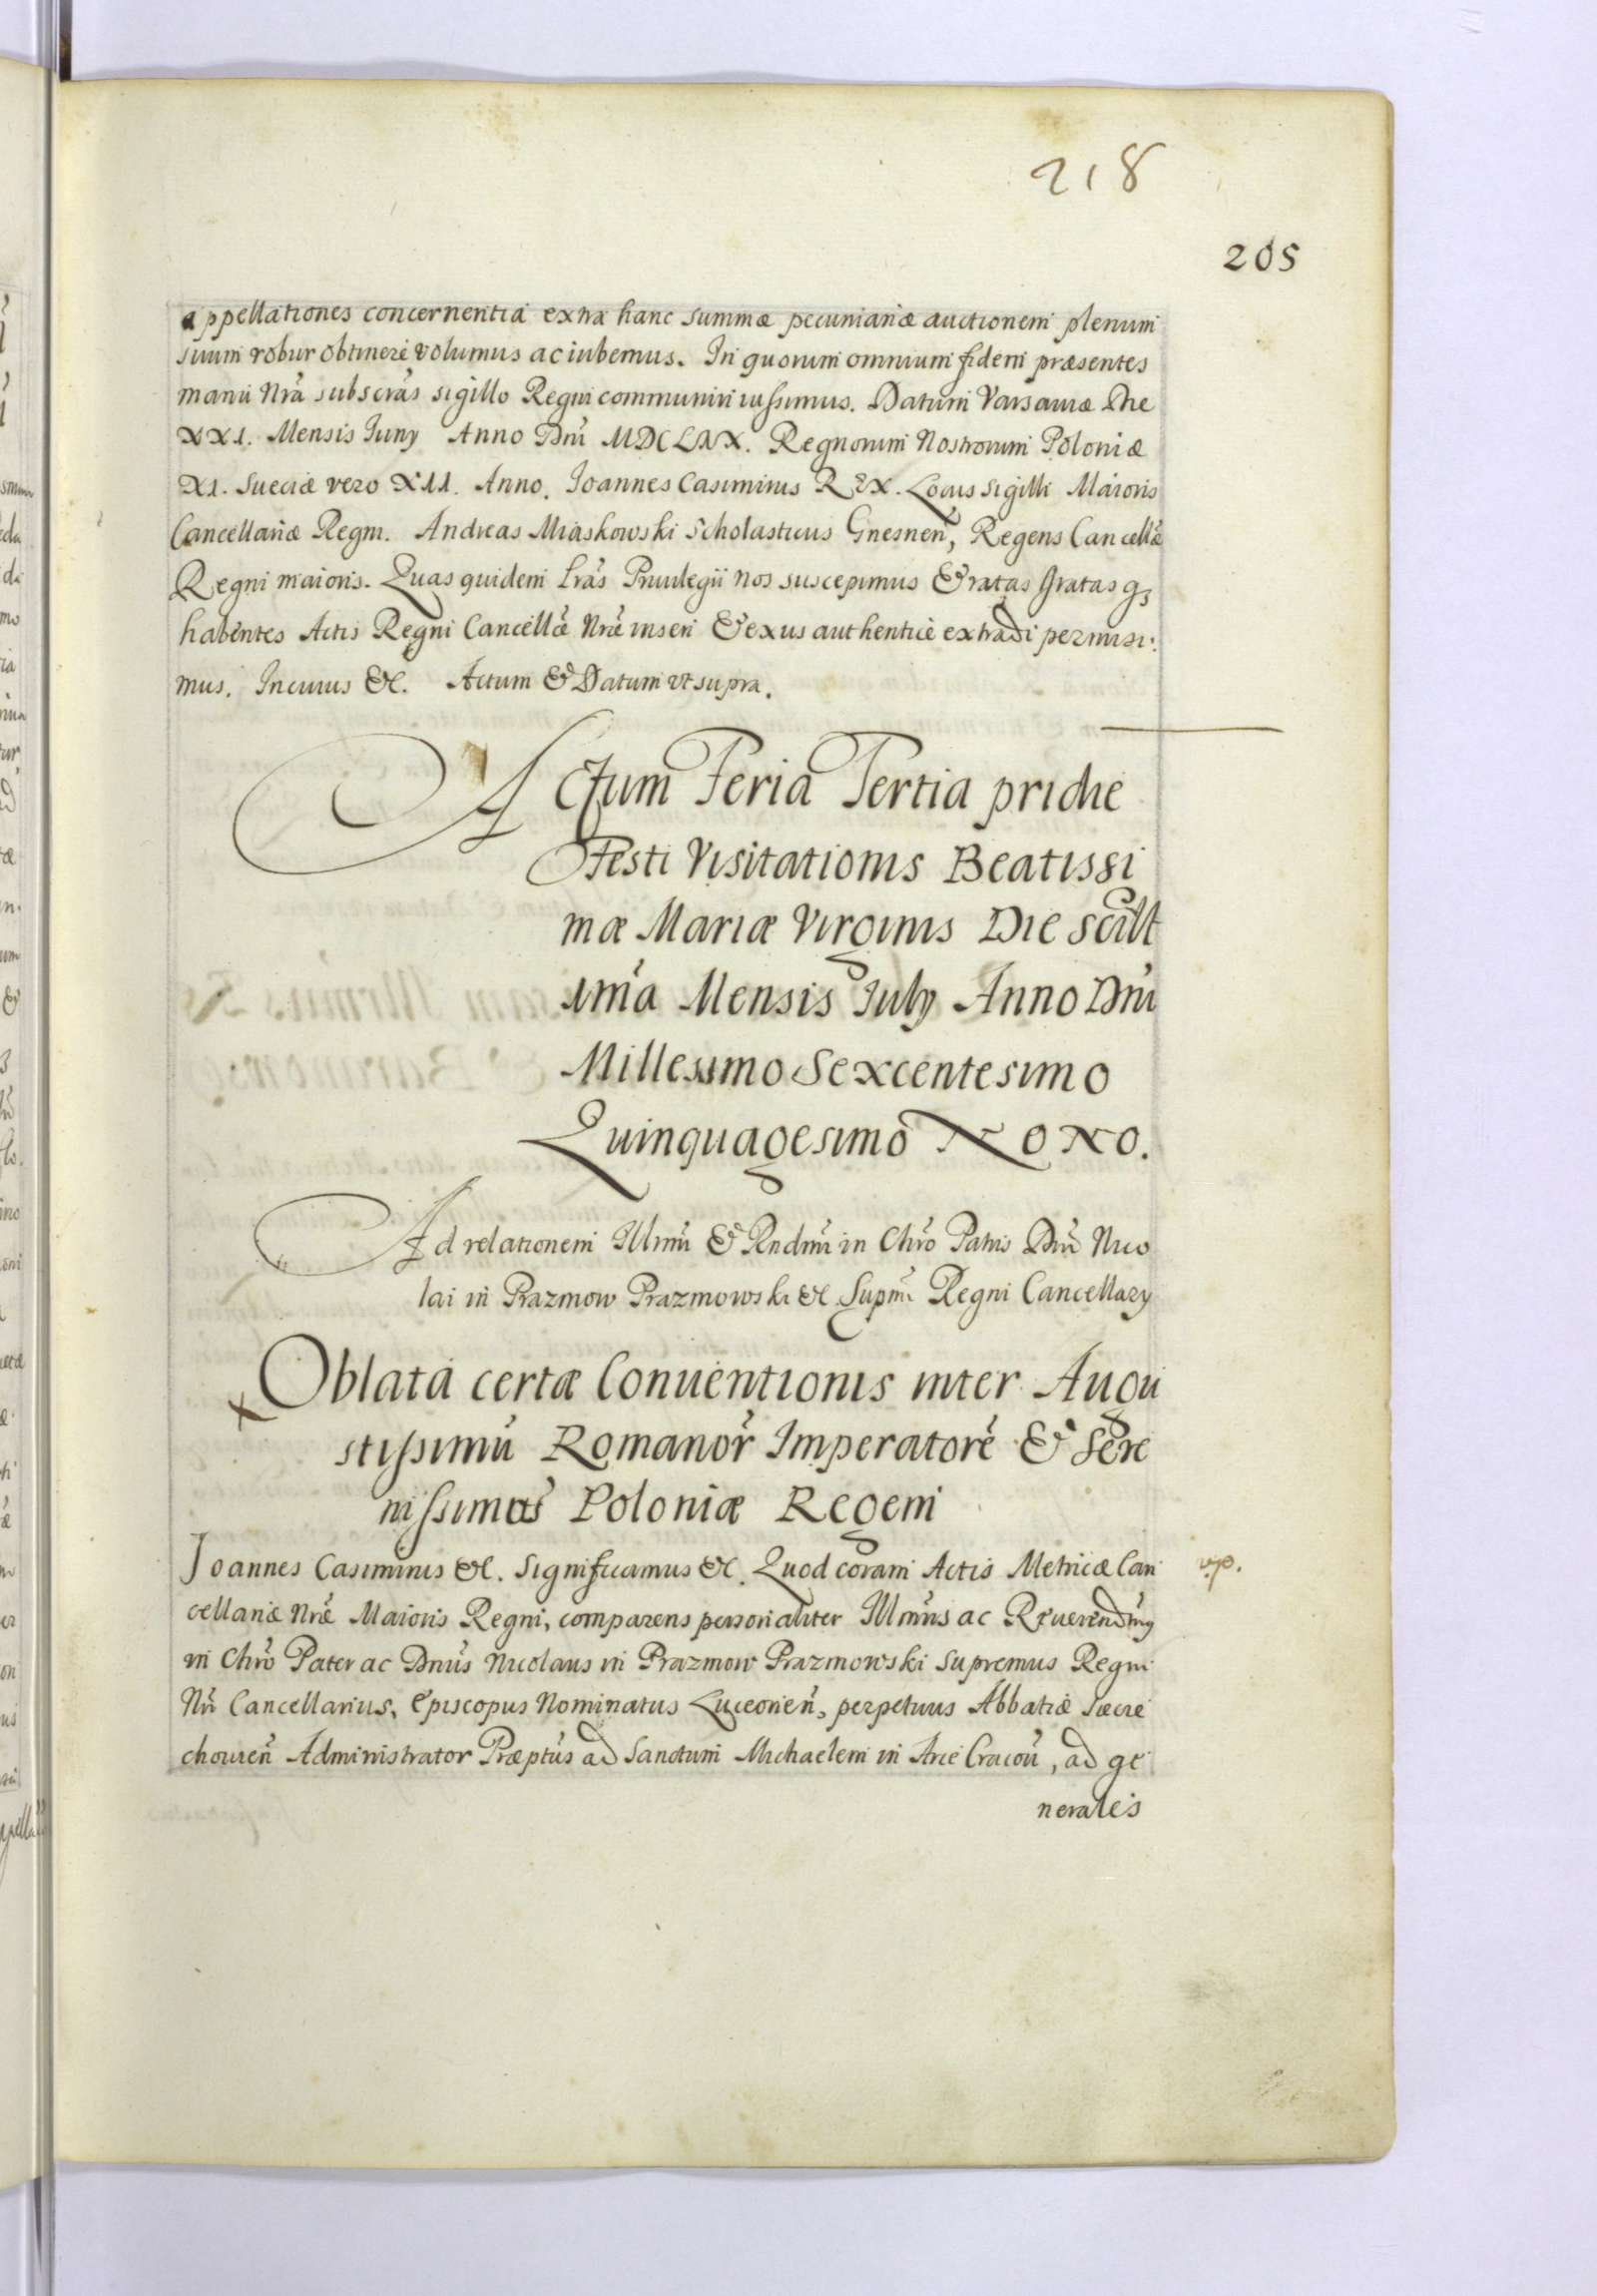 218
205
appellationes concernentia extra hanc summæ pecuniariæ auctionem plenum
suum robur obtinere volumus ac iubemus. In quorum omnium fidem præsentes
manu Nrã subscrãs sigillo Regni communiri iussimus. Datum Varsaviæ Die
XXI. Mensis Iuny Anno Dnĩ MDCLIX. Regnorum Nostrorum Poloniæ
XI. Sueciæ vero XII. Anno. Ioannes Casimirus REX. Locus Sigilli Maioris
Cancellariæ Regni. Andreas Miaskowski Scholasticus Gnesneñ, Regens Cancellæ̃
Regni maioris. Quas quidem Lrãs Priuilegii nos suscepimus & ratas gratas qꝫ
habentes Actis Regni Cancellæ̃ Nræ̃ inseri & ex us authentice extradi permisi:
mus. In cuius &c. Actum & Datum vt supra.
Actum Feria Tertia pridie
Festi Visitationis Beatissi
mæ Mariæ Virginis Die scilt
1mã Mensis July Anno Dnĩ
Millesimo Sexcentesimo
Quinquagesimo NONO.
Ad relationem Illmĩ & Rndmĩ in Chrõ Patris Dnĩ Nico
lai in Prazmow Prazmowski &c Supmĩ Regni Cancellary
Oblata certæ Conuentionis inter Augu
stissimũ Romanor̃ Imperatorẽ & Sere
nissimũ Poloniæ Regem
Ioannes Casimirus &c. Significamus &c. Quod coram Actis Metricæ Can
cellariæ Nræ̃ Maioris Regni, comparens personaliter Illmũs ac Reuerendmũs
in Chrõ Pater ac Dnũs Nicolaus in Prazmow Prazmowski Supremus Regni
Nrĩ Cancellarius, Episcopus Nominatus Luceorieñ, perpetuus Abbatiæ Sæcie
chouieñ Administrator Præptũs ad Sanctum Michaelem in Arce Cracoũ, ad ge
nerales